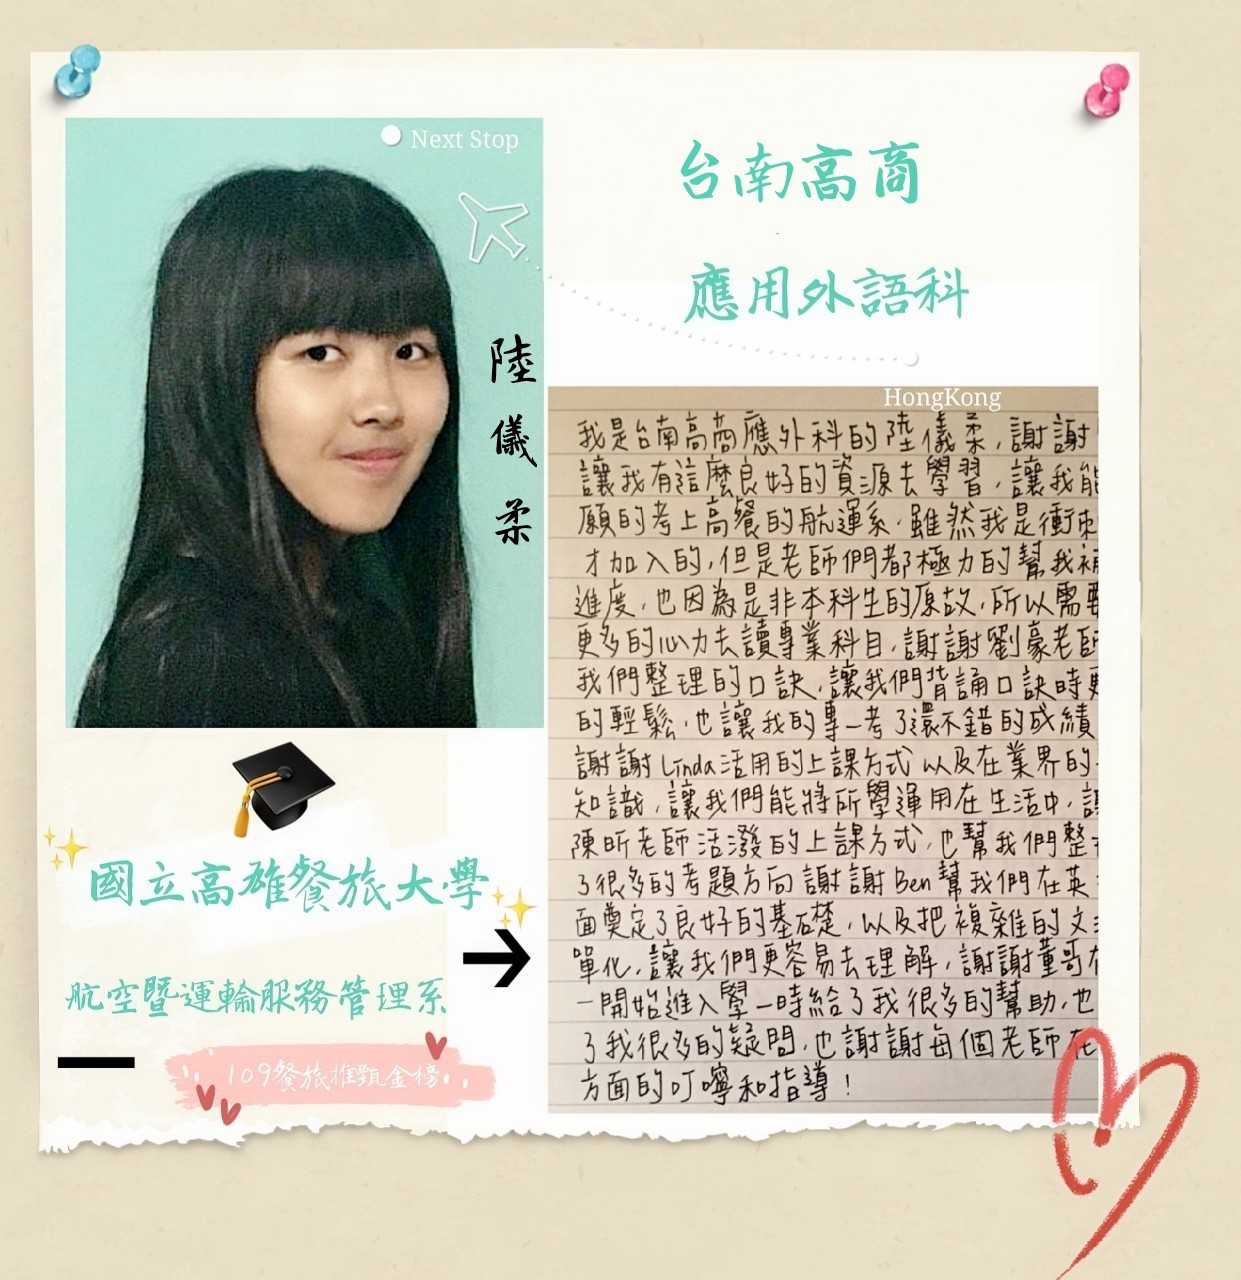 Next Stop
台南高商
應用外語科
陸儀柔
HongKong
我是台南高商應外科的陸儀柔,謝謝
讓我有這麼良好的資源去學習,讓我能
願的考上高餐的航運系.雖然我是衝刺
才加入的,但是老師們都極力的幫我補
進度,也因為是非本科生的原故,所以需要
更多的心力去讀專業科目,謝謝劉豪老師
我們整理的口訣,讓我們背誦口訣時更
的輕鬆,也讓我的專一考了還不錯的成績
謝謝Linda活用的上課方式 以及在業界的
知識,讓我們能將所學運用在生活中,
陳昕老師活潑的上課方式,也幫我們整
了很多的考題方向 謝謝Ben幫我們在英
面奠定了良好的基礎,以及把複雜的文
單化,讓我們更容易去理解,謝謝董哥在
一開始進入學一時給了我很多的幫助,也
了我很多的疑問,也謝謝每個老師在
方面的叮嚀和指導!
國立高雄餐旅大學
航空暨運輸服務管理系
109餐旅推甄金榜